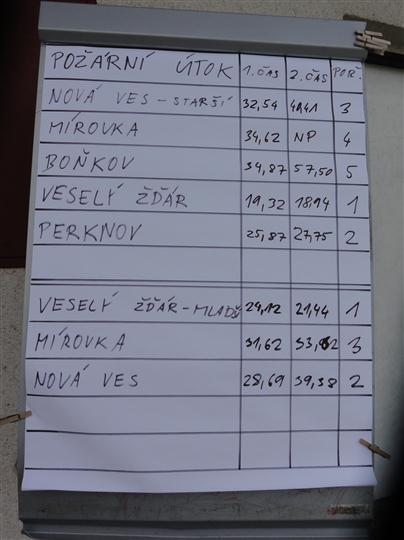 POŽÁRNÍ ÚTOK 1. ČAS 2. ČAS POŘ.
NOVÁ VES - STARŠÍ 32,54 41,41 3
MÍROVKA 34,62 NP 4
BOŇKOV 34,87 57,50 5
VESELÝ ŽĎÁR 19,32 18,94 1
PERKNOV 25,87 27,75 2
VESELÝ ŽĎÁR - MLADŠÍ 24,12 21,44 1
MÍROVKA 31,62 33,62 3
NOVÁ VES 28,69 39,38 2